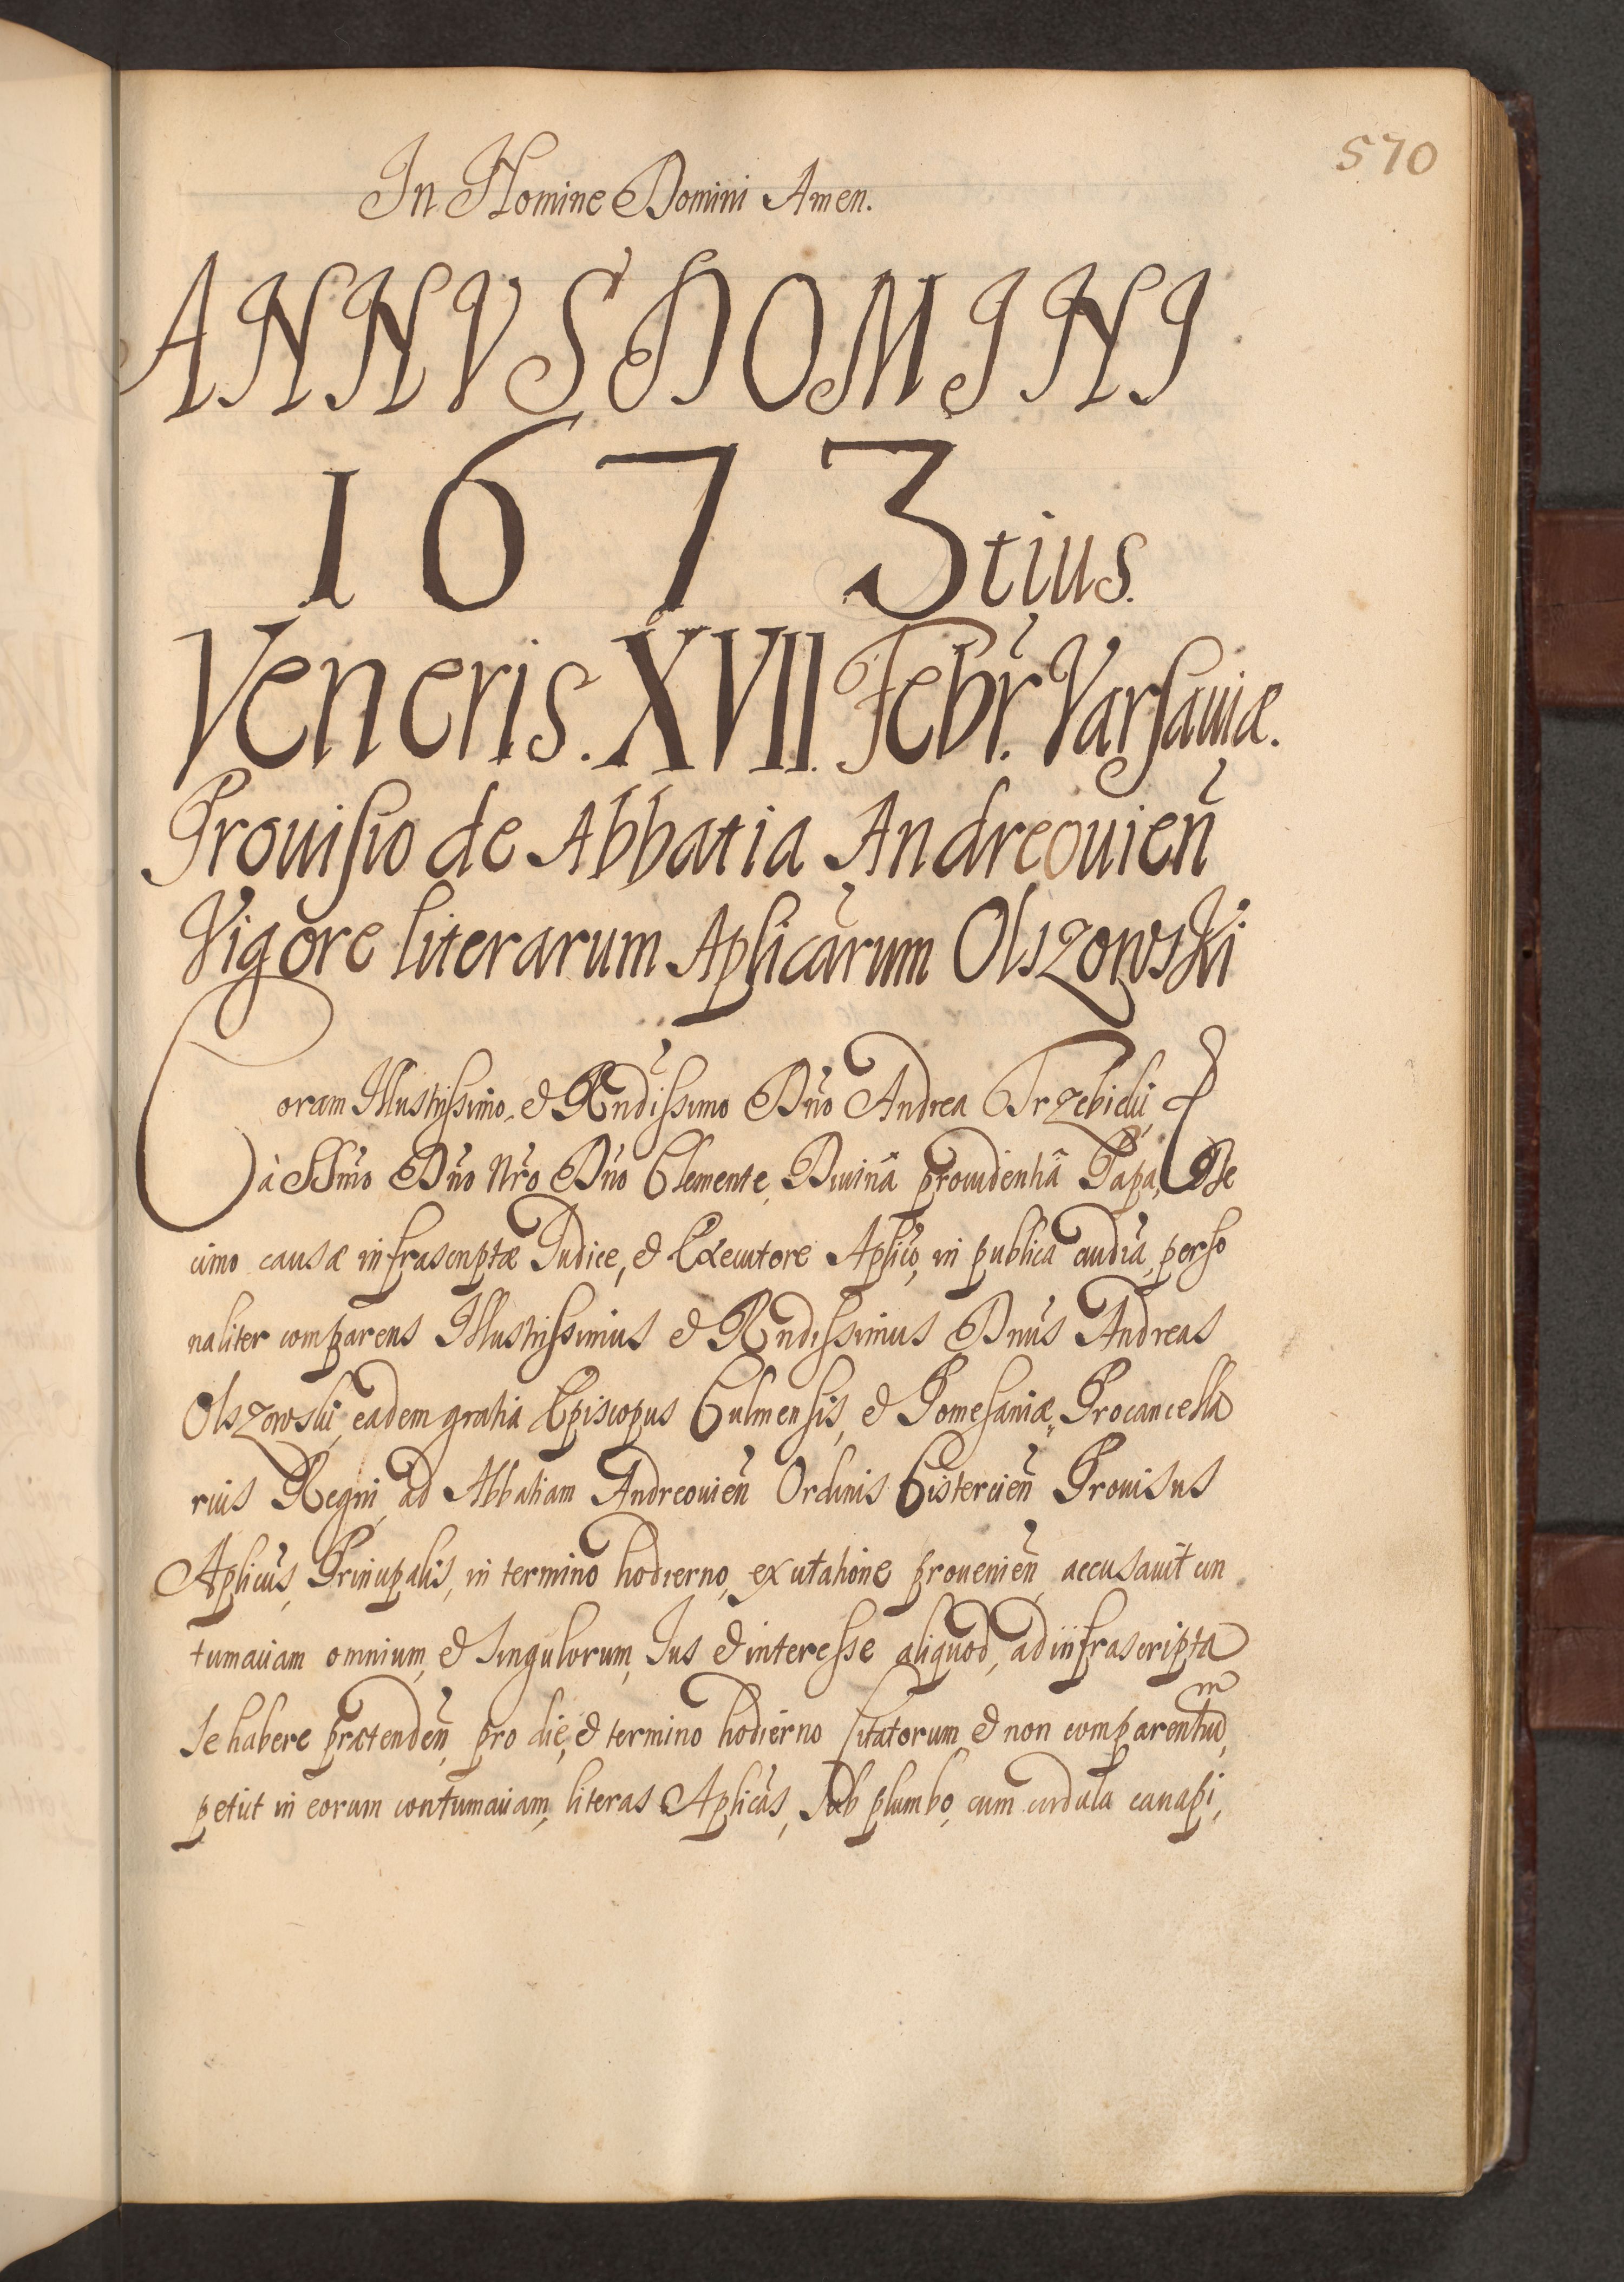 570
In Nomine Domini Amen.
ANNVS DOMINI
1673tius.
Veneris. XVII. Febr̃. Varsauiæ.
Prouisio de Abbatia Andreouieñ
Vigore literarum Aplicarum Olszowski
Coram Illustrissimo, et Rndissimo Dño Andrea Trzebicki,
à SSmo Dño Nrõ Dño Clemente, Diuinâ prouidentiâ Papa, De
cimo causæ infrascriptæ Iudice, et Executore Aplico, in publica audiã, perso
naliter comparens Illustrissimus et Rndissimus Dnus Andreas
Olszowski, eadem gratia Episcopus Culmensis, et Pomesaniæ, Procancella
rius Regni, ad Abbatiam Andreouieñ Ordinis Cistercieñ Prouisus
Aplicus, Principalis, in termino hodierno, ex citatione prouenieñ, accusauit con
tumaciam omnium, et singulorum, Ius et interesse aliquod, ad infrascripta
se habere prætendeñ, pro die, et termino hodierno citatorum, et non comparentium,
petijt in eorum contumaciam, literas Aplicas, sub plumbo, cum cordula canapi,